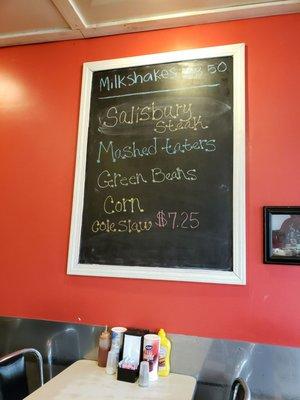 Milkshakes 3.50
Salisbury
Steak
Mashed taters
Green Beans
Corn
Cole Slaw $7.25